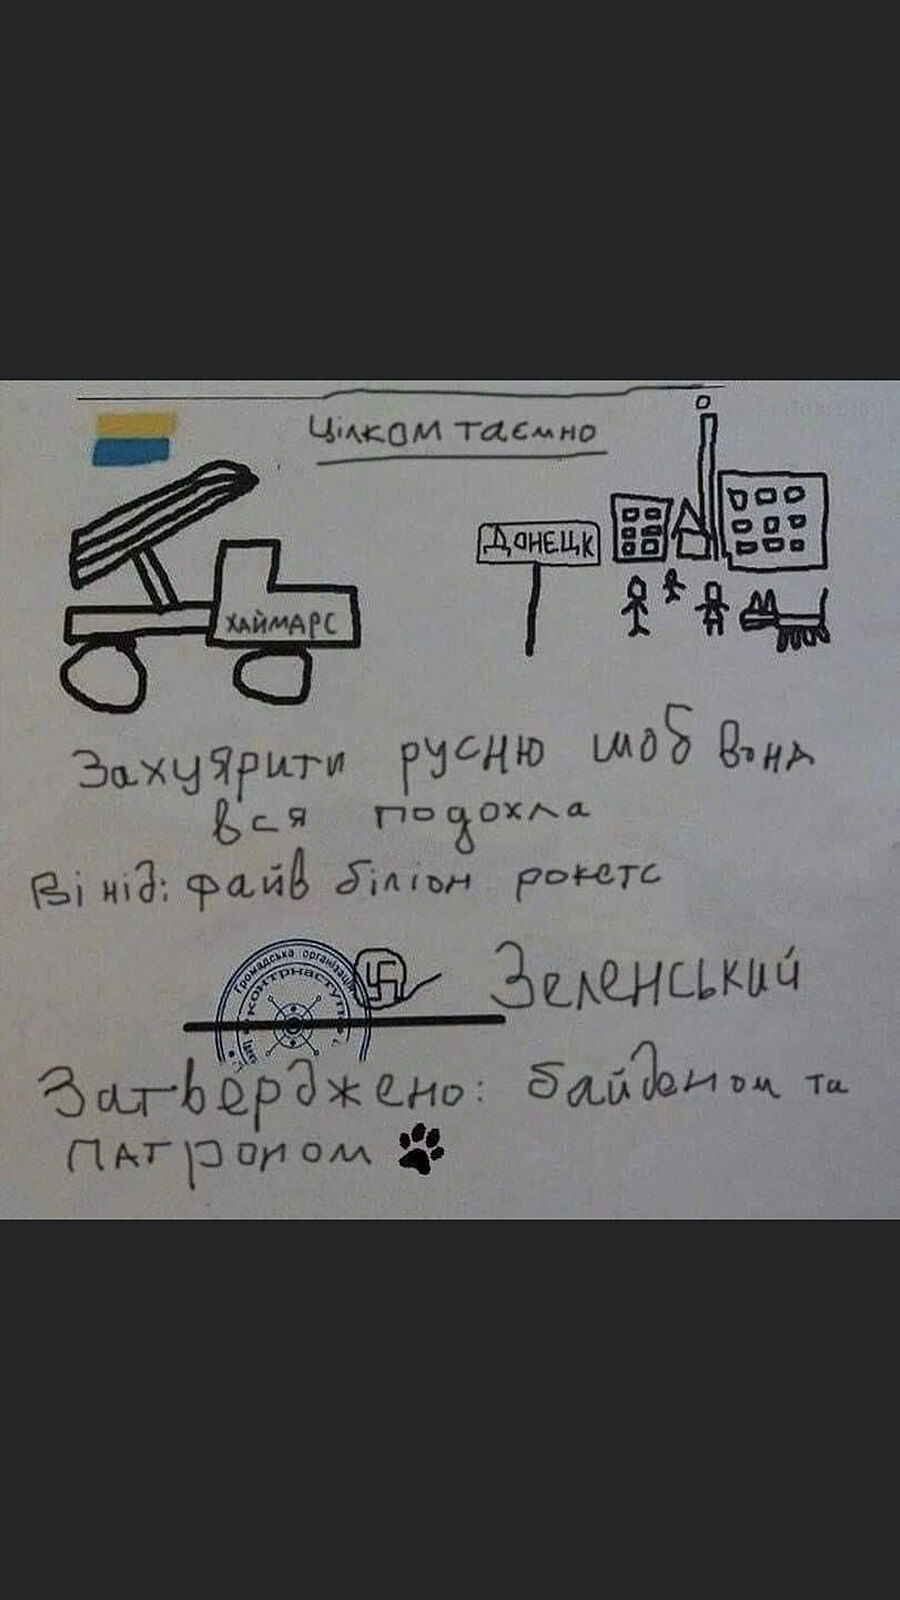 Цілком таємно
ДОНЕЦК
ХАЙМАРС
Захуярити русню шоб вона
вся подохла
Ві нід: файв біліон рокетс
Громадська організація
контрнаступ
Зеленський
Затверджено: байденом та
патроном